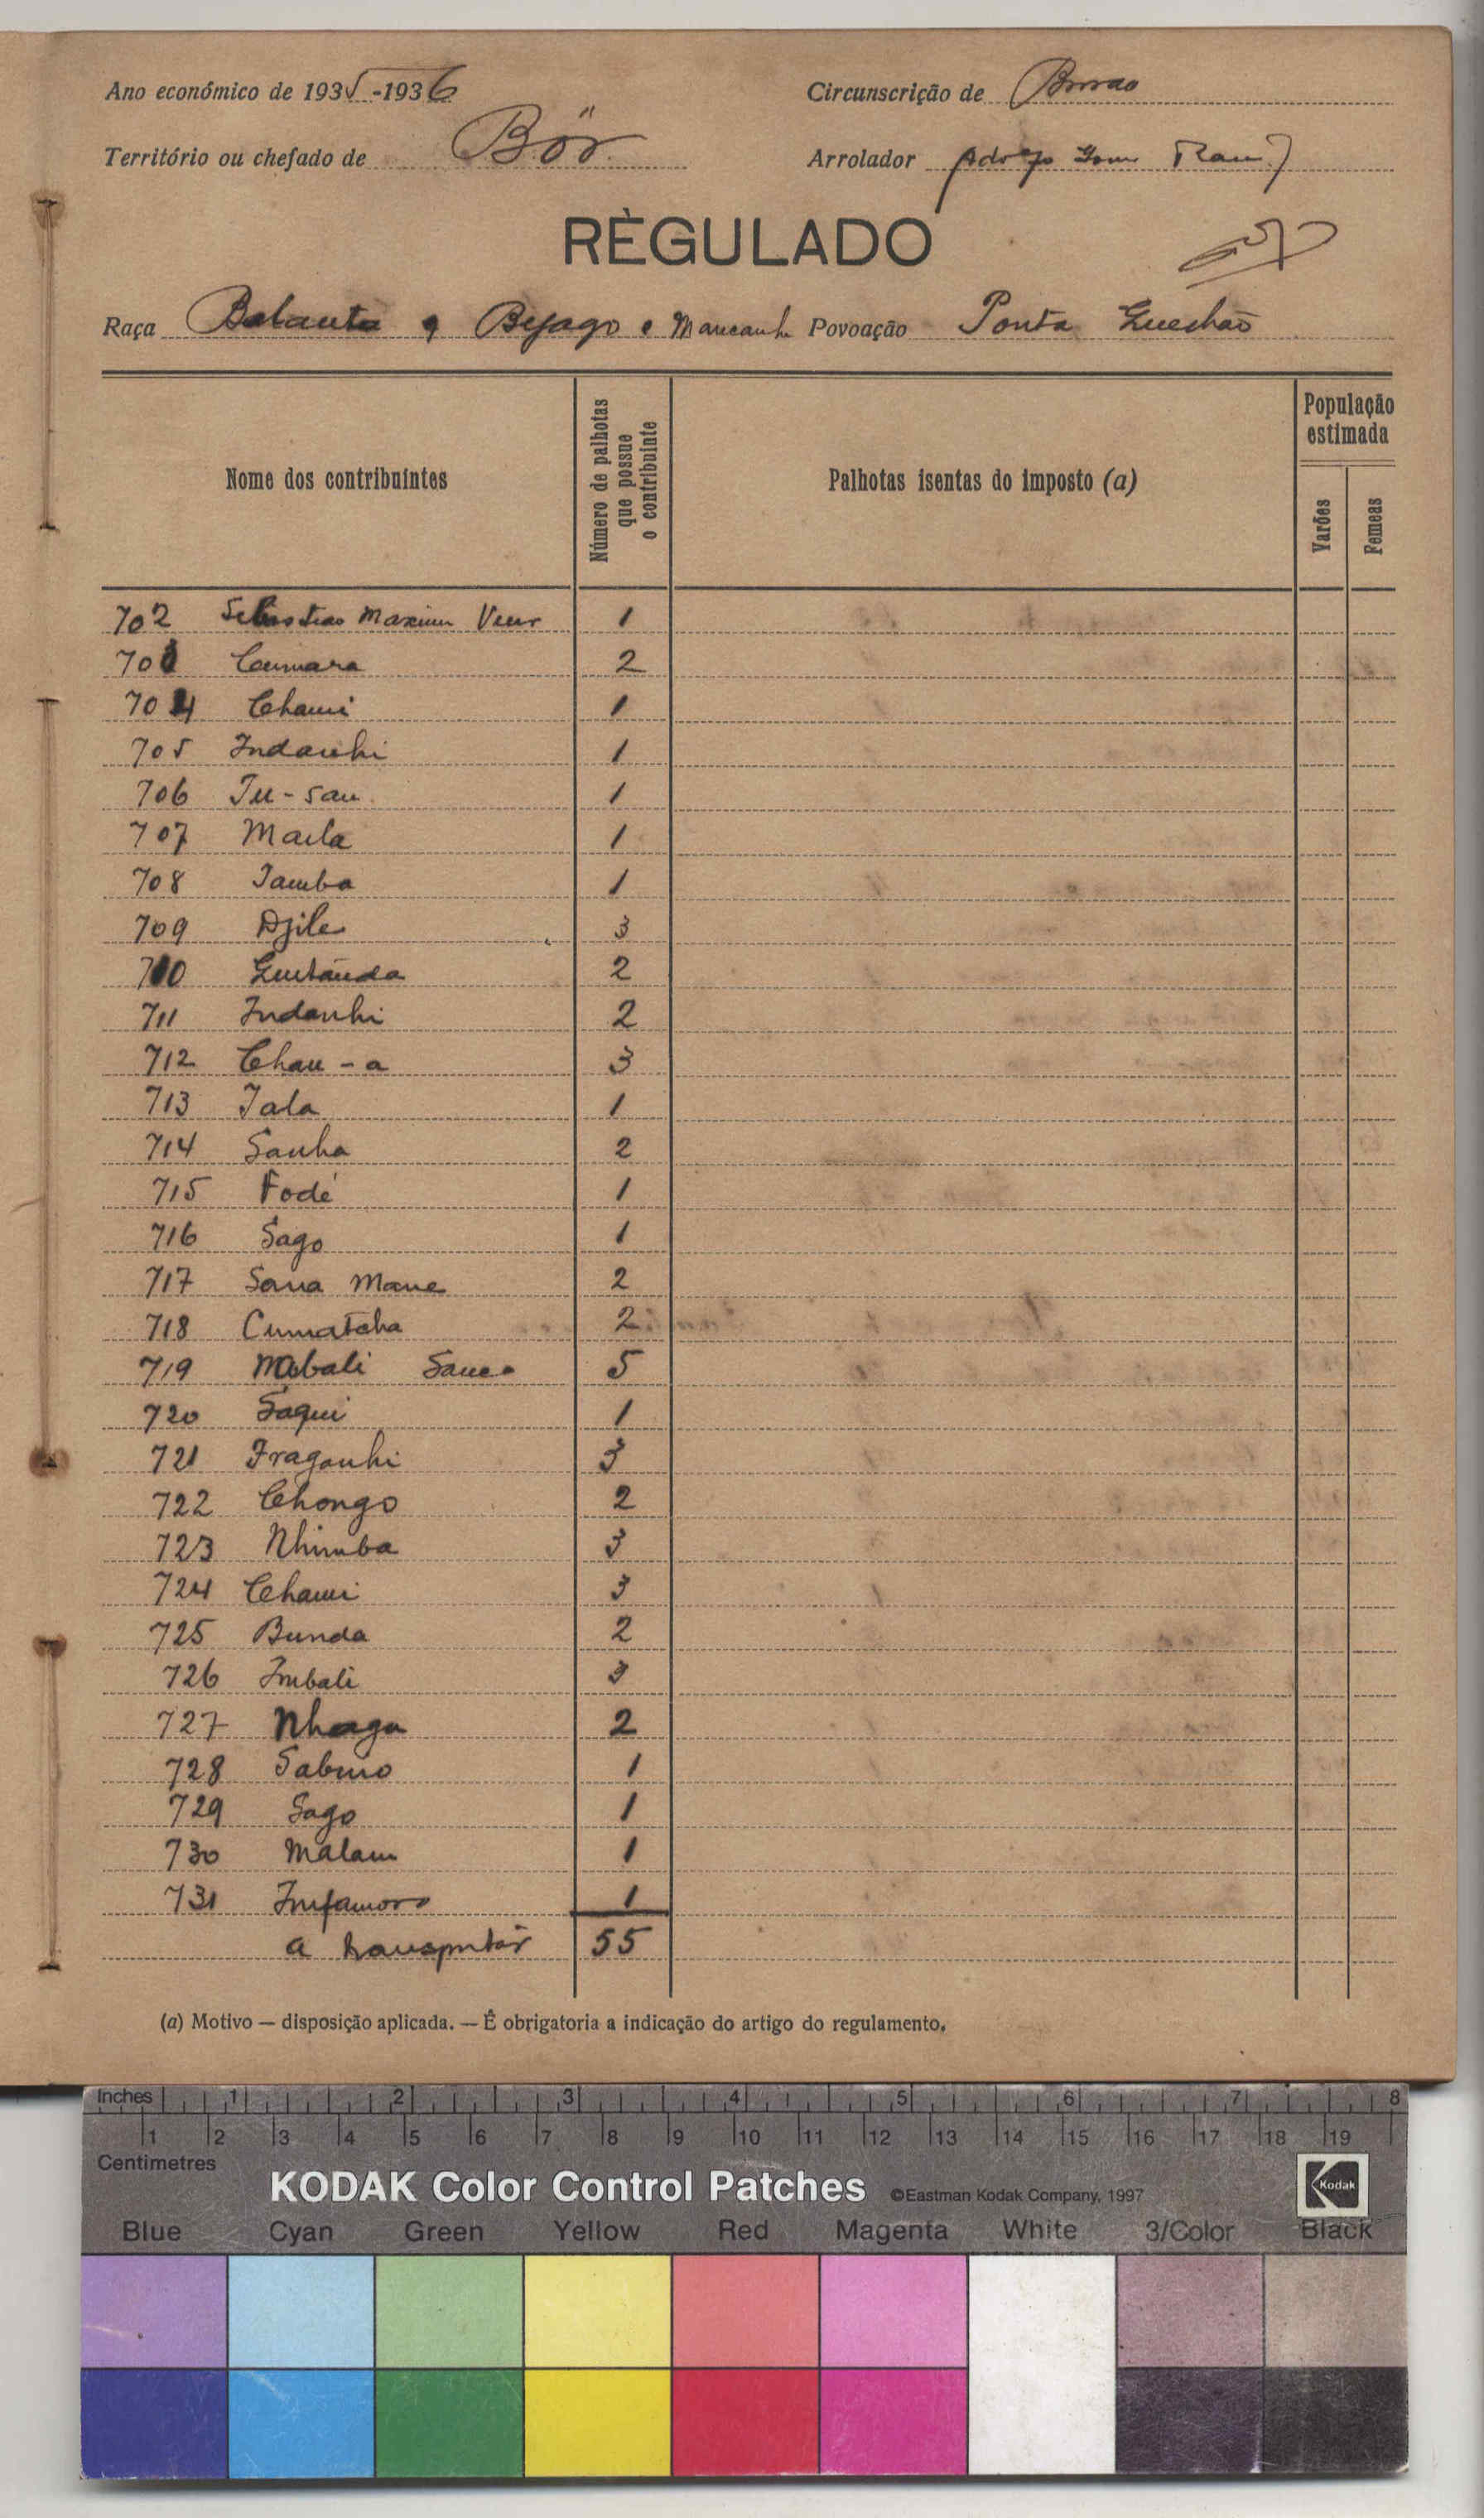 Ano económico de 1935-1936 Circunscrição de
Território ou chefado de Bôr Arrolador
RÈGULADO
Raça Balanta e Bejago e Mancanh Povoação Ponta
Nome dos contribuintes
Número de palhotas
que possue
o contribuinte
Palhotas isentas do imposto (a)
População
estimada
Varões
Femeas
702 1
703 2
704 Chami 1
705 Indanhi 1
706 1
707 Maila 1
708 Tamba 1
709 Djile 3
710 2
711 Indanhi 2
712 3
713 Tala 1
714 Sanha 2
715 Fodé 1
716 Sago 1
717 Sana Mane 2
718 Cumatcha 2
719 Mabali 5
720 Saqui 1
721 Fraganhi 3
722 Chongo 2
723 Nhimba 3
724 Chami 3
725 Bunda 2
726 Imbali 3
727 Nhaga 2
728 Sabino 1
729 Sago 1
730 Malam 1
731 Infamoro 1
a transportar 55
(a) Motivo — disposição aplicada. — É obrigatoria a indicação do artigo do regulamento.
Inches 1 2 3 4 5 6 7 8
1 2 3 4 5 6 7 8 9 10 11 12 13 14 15 16 17 18 19
Centimetres
KODAK Color Control Patches ©Eastman Kodak Company, 1997 Kodak
Blue Cyan Green Yellow Red Magenta White 3/Color Black